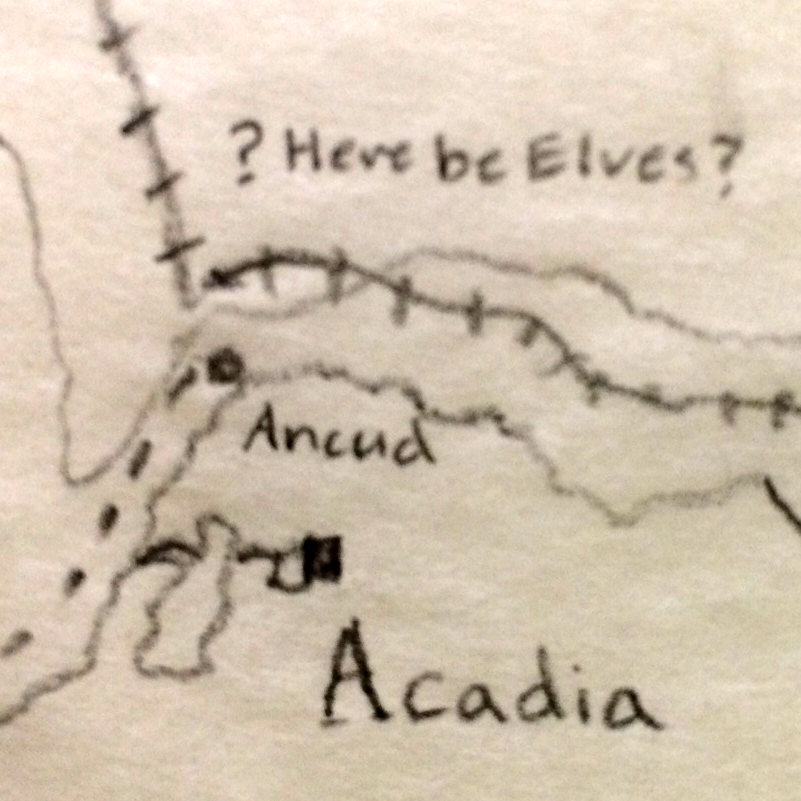 ? Here be Elves?
Ancud
Acadia